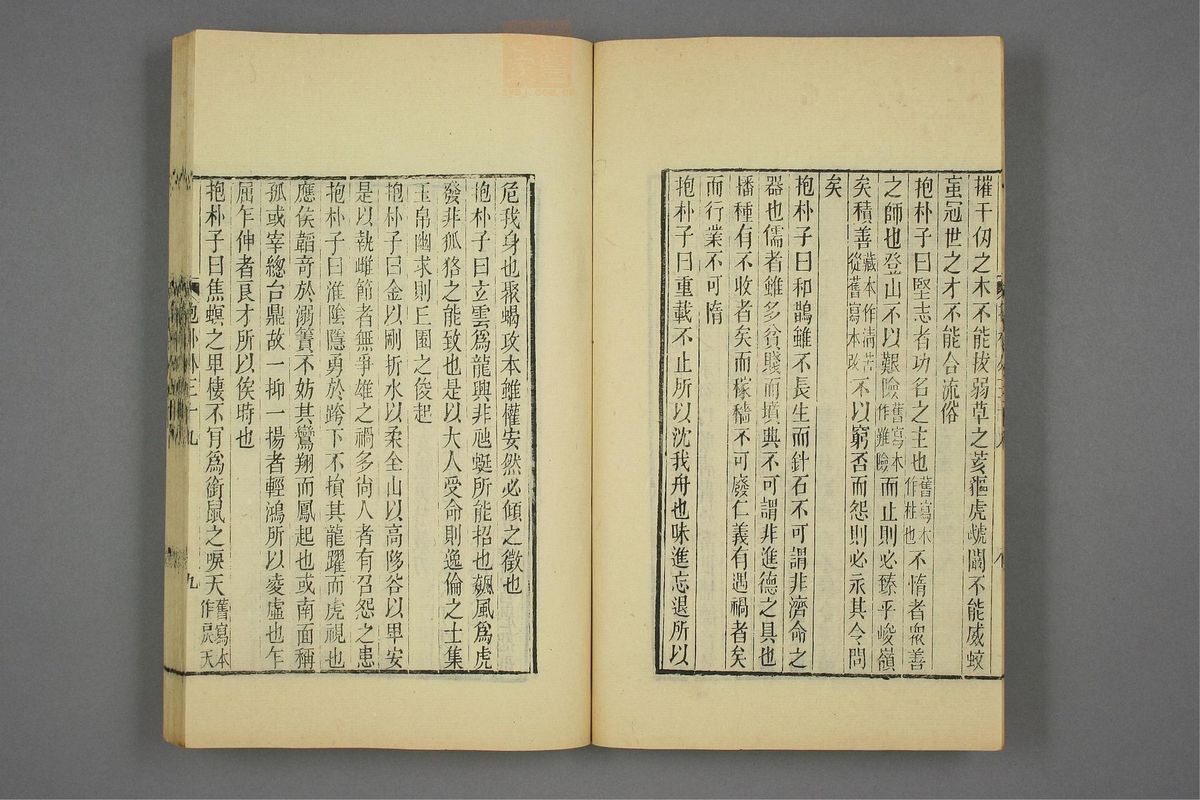 摧千仞之木不能拔弱草之荄䝙虎虣闞不能威蚊
䖟冠世之才不能合流俗
抱朴子曰堅志者功名之主也舊寫本作柱也不惰者衆善
之師也登山不以艱險舊寫本作難險而止則必臻乎峻嶺
矣積善藏本作清苦從舊寫本改不以窮否而怨則必永其令問
矣
抱朴子曰和鵲雖不長生而針石不可謂非濟命之
器也儒者雖多貧賤而墳典不可謂非進德之具也
播種有不收者矣而稼穡不可廢仁義有遇禍者矣
而行業不可惰
抱朴子曰重載不止所以沈我舟也昧進忘退所以
危我身也聚蝎攻本雖權安然必傾之徵也
抱朴子曰立雲爲龍興非虺蜓所能招也飆風爲虎
發非狐狢之能致也是以大人受命則逸倫之士集
玉帛幽求則丘園之俊起
抱朴子曰金以剛折水以柔全山以高陊谷以卑安
是以執雌節者無爭雄之禍多尚人者有召怨之患
抱朴子曰淮陰隱勇於跨下不損其龍躍而虎視也
應侯韜奇於溺簀不妨其鸞翔而鳳起也或南面稱
孤或宰總台鼎故一抑一揚者輕鴻所以凌虛也乍
屈乍伸者良才所以俟時也
抱朴子曰焦螟之卑棲不肯爲銜鼠之唳天舊寫本作淚天
抱朴外三十九
九